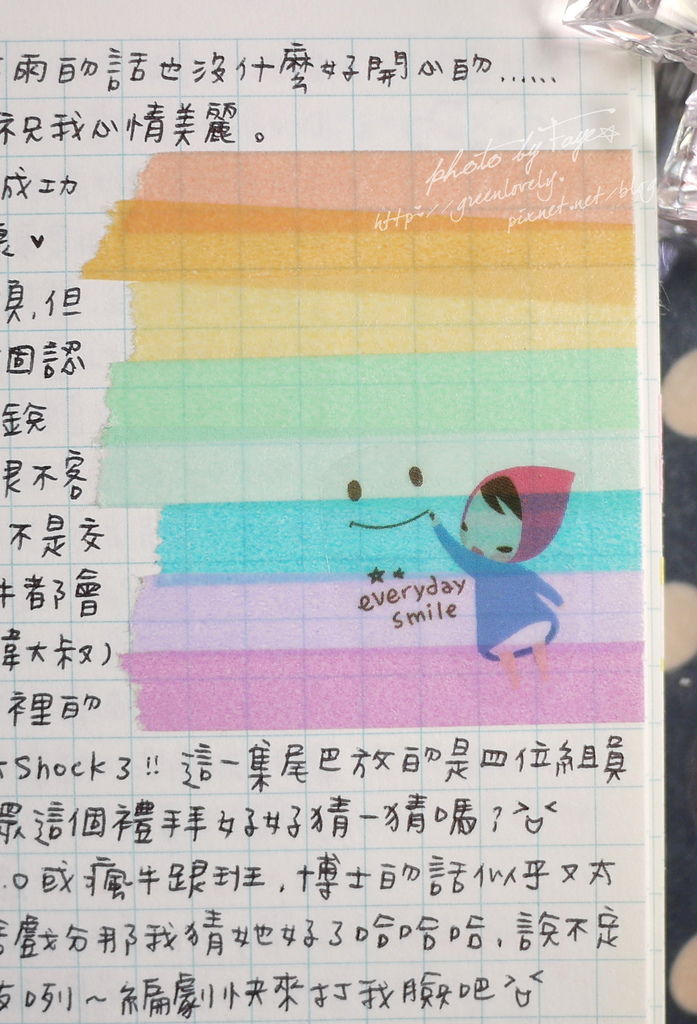 雨的話也沒什麼好開心的……
祝我心情美麗。
photo by Faye☆
http://greenlovely.
pixnet.net/blog
成功
員,但
固認
銳
不客
不是交
牛都會
偉大叔)
裡的
everyday
smile
Shock 3!! 這一集尾巴放的是四位組員
眾這個禮拜好好猜一猜嗎?
.0或瘋牛跟班,博士的話似乎又太
戲分那我猜她好了哈哈哈,說不定
咧~編劇快來打我臉吧